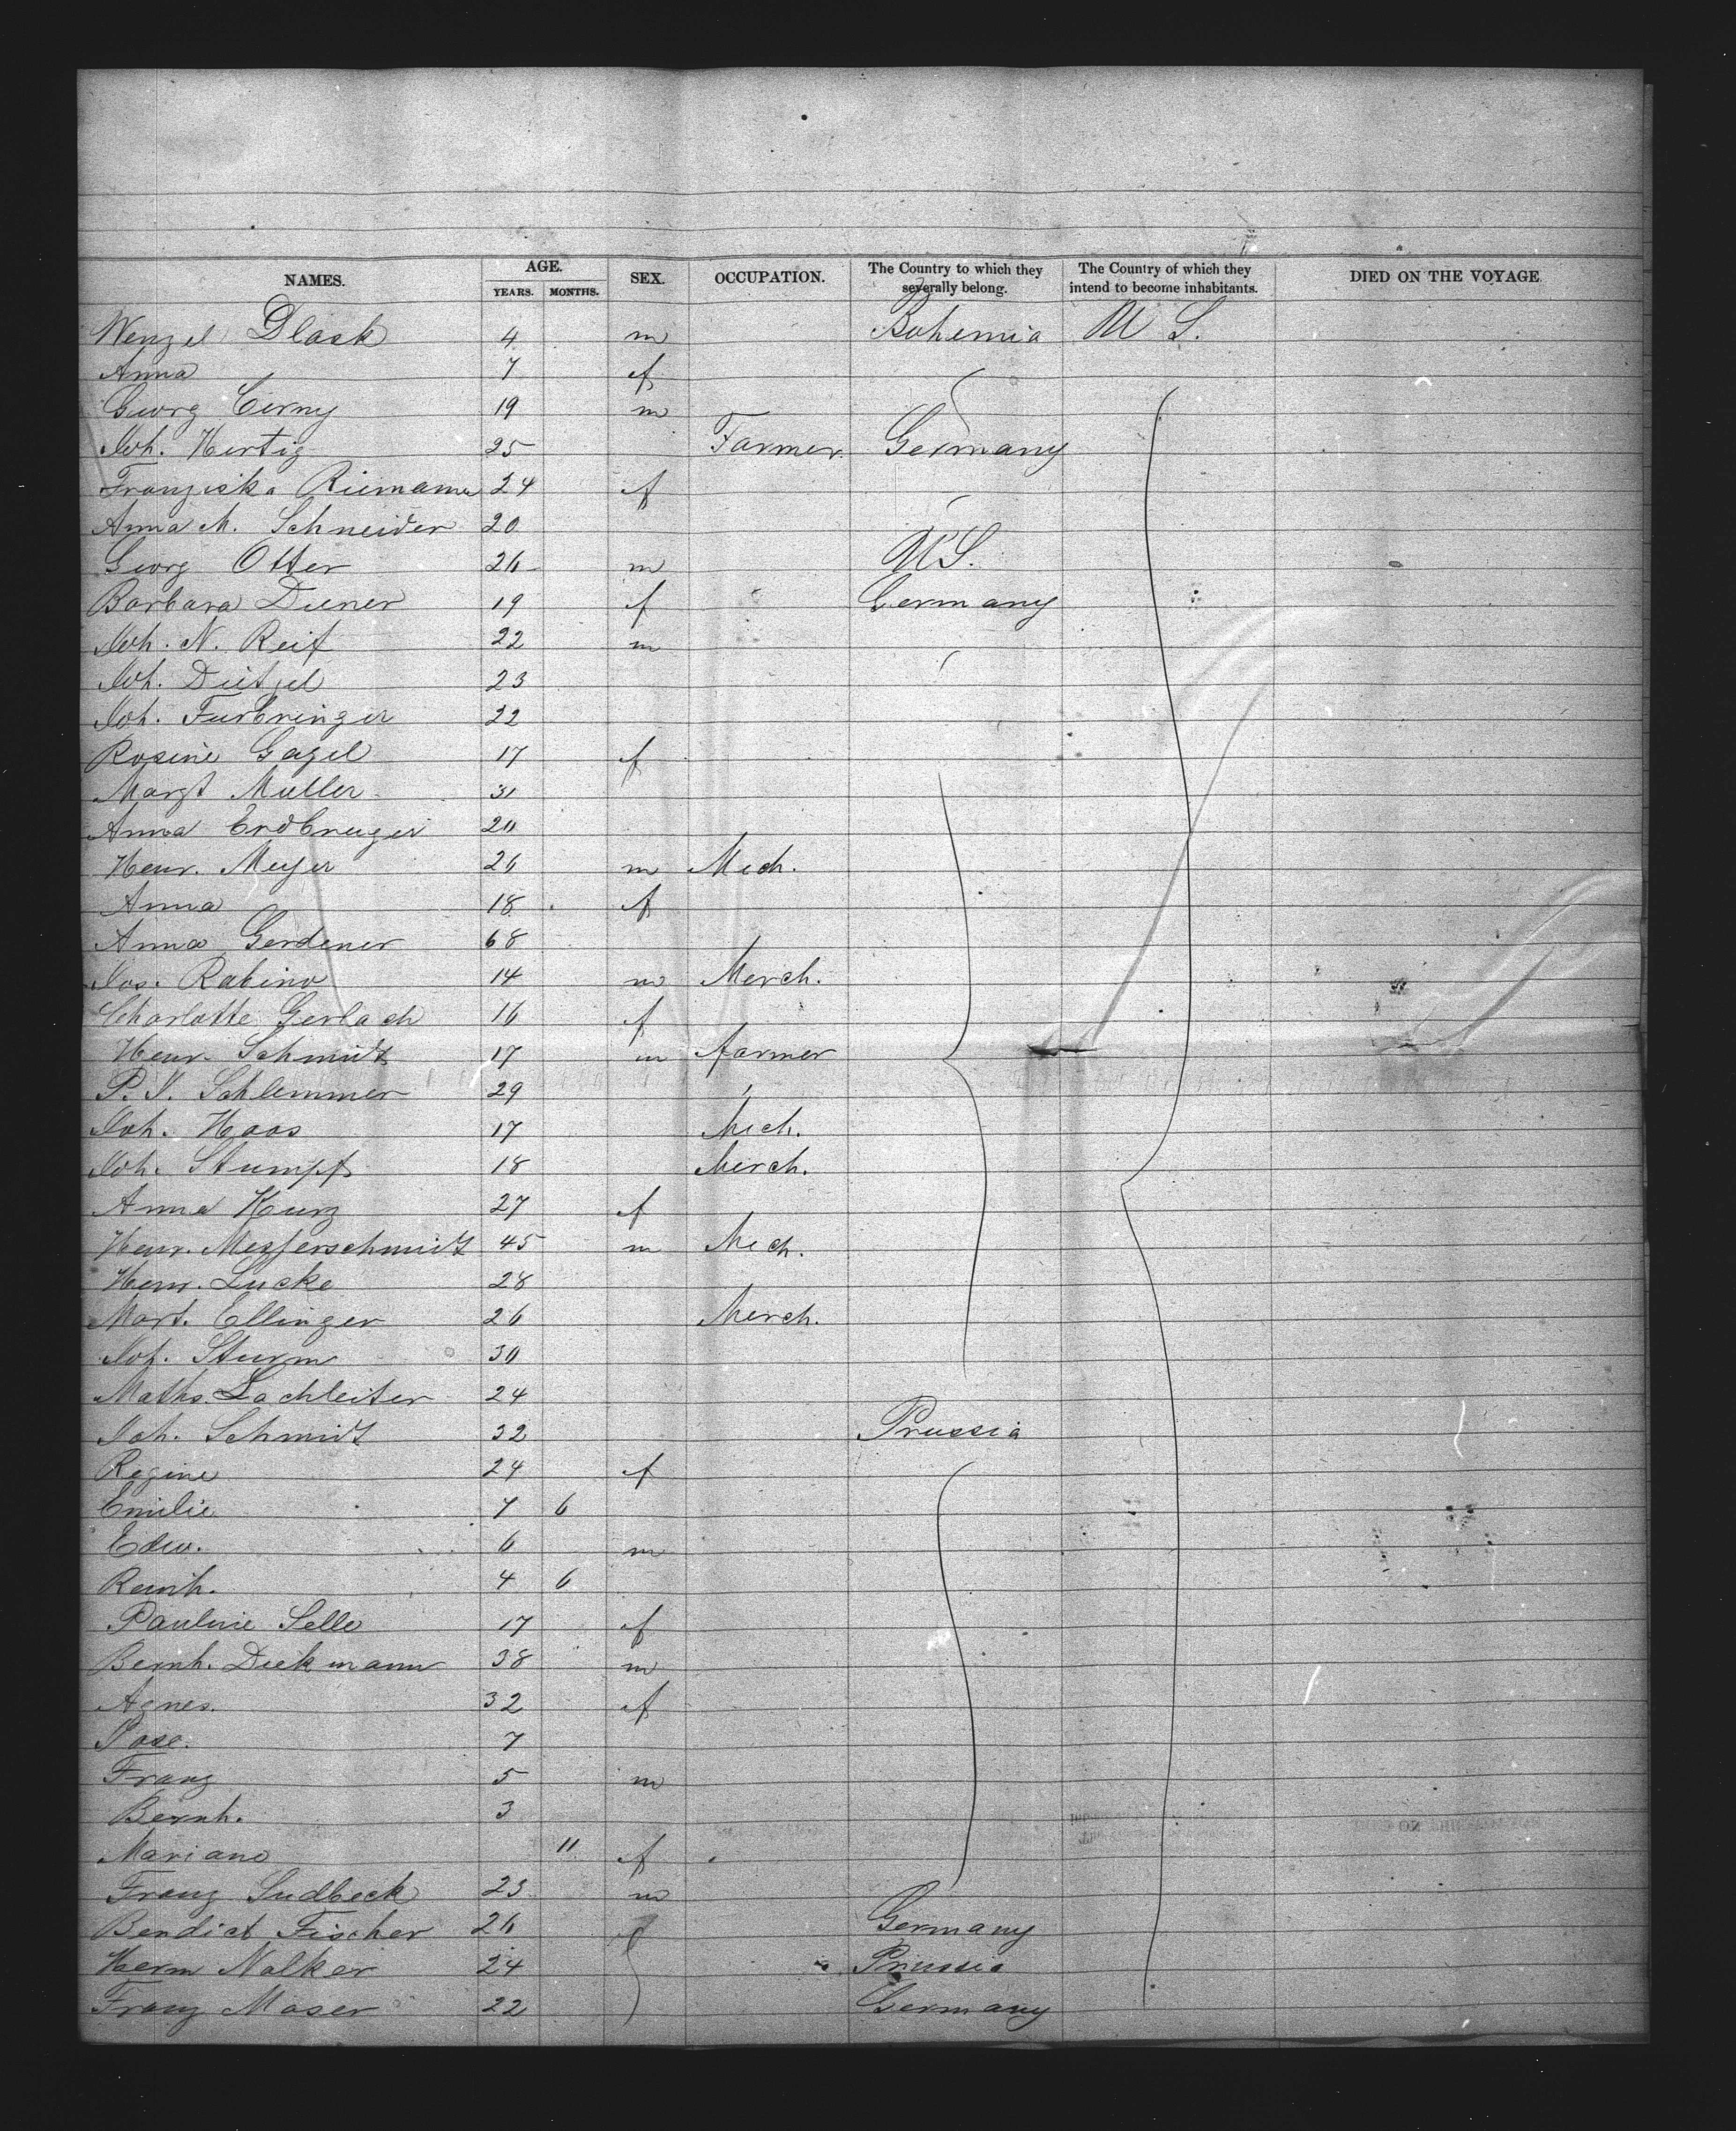 NAMES. AGE. YEARS. MONTHS. SEX. OCCUPATION. The Country to which they severally belong. The Country of which they intend to become inhabitants. DIED ON THE VOYAGE
Wenzel Dlask 4 m Bohemia U S.
Anna 7 f
Georg Cerny 19 m
Joh. Hertig 25 Farmer. Germany
Franziska Riemann 24 f
Anna M. Schneider 20
Georg Otter 26 m U S.
Barbara Diener 19 f Germany
Joh. N. Reif 22 m
Joh. Dietzel 23
Joh. Furbringer 22
Rosine Gagel 17 f
Margt Muller 31
Anna 20
Henr. Meyer 26 m Mech.
Anna 18 f
Anna Gerdener 68
Jos. Rabino 14 m Merch.
Charlotte Gerlach 16 f
Henr. Schmidt 17 m farmer
P. J. Schlemmer 29
Joh. Haas 17 Mech.
Joh. Stumpf 18 Merch.
Anna Kurz 27 f
Henr. Messerschmidt 45 m Mech.
Henr. Lucke 28
Mart. Ellinger 26 Merch.
Joh. Sturm 30
Maths. Lachleiter 24
Joh. Schmidt 32 Prussia
Regine 24 f
Emilie 7 6
Edw. 6 m
Reinh. 4 6
Pauline Selle 17 f
Bernh. Diekmann 38 m
Agnes. 32 f
7
Franz 5 m
Bernh. 3
Mariane 11 f
Franz Sudbeck 23 m
Bendict Fischer 26 Germany
Herm Nolker 24 Prussia
Franz Moser 22 Germany